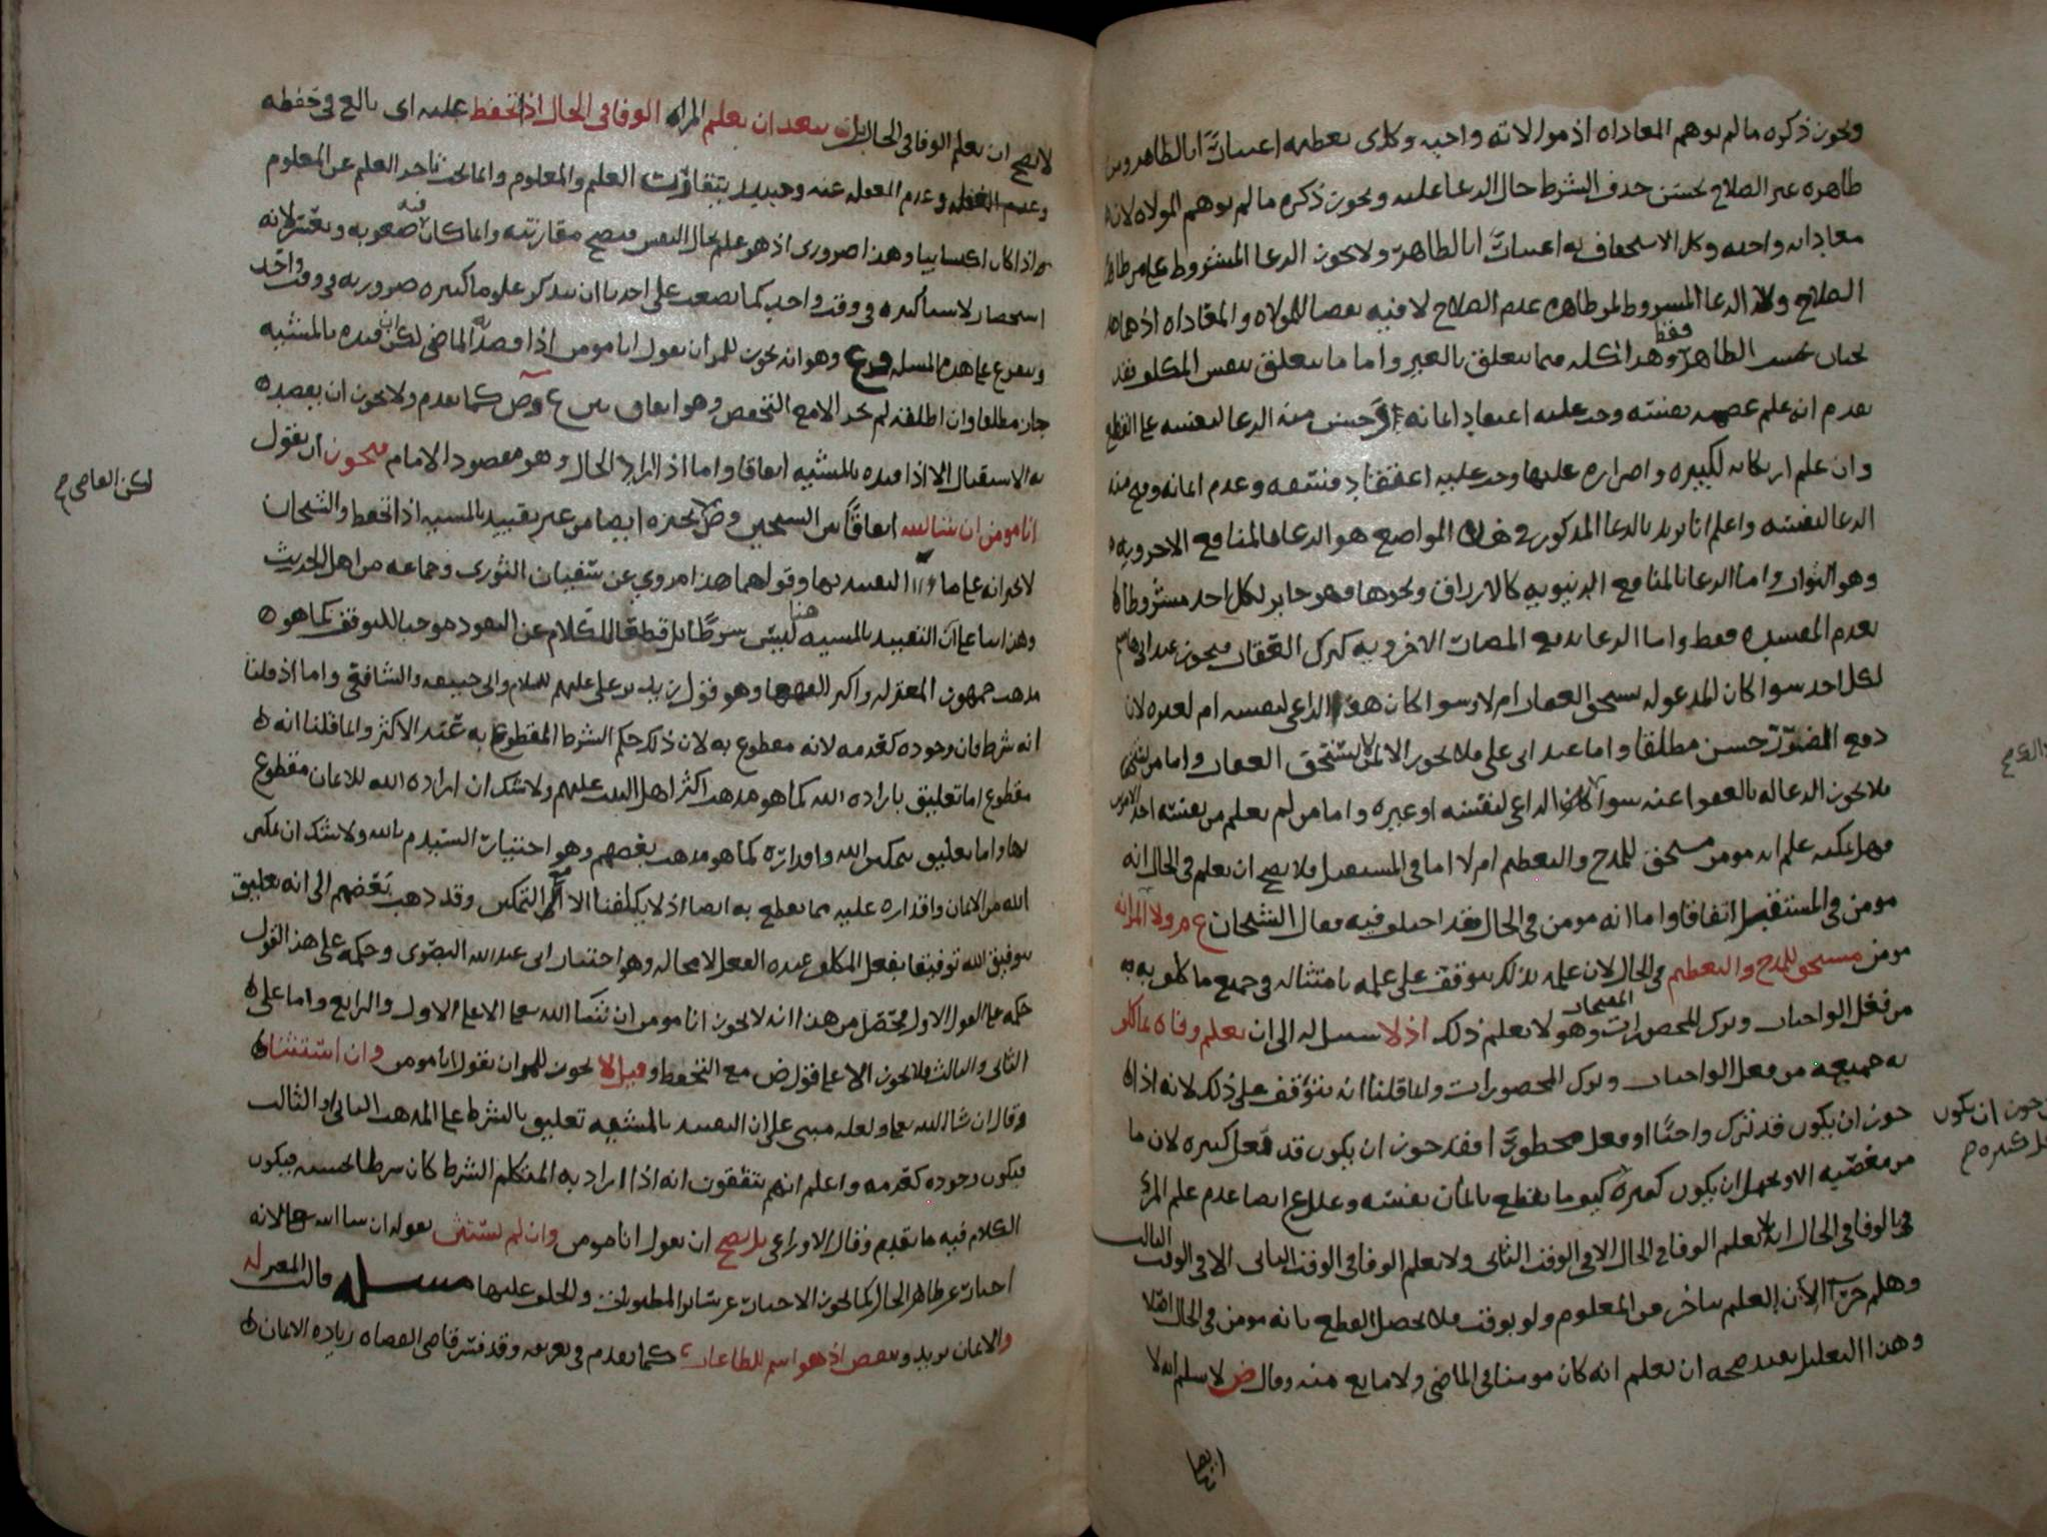 ويجوز ذكره ما لم يوهم المعاداه اذ موالاته واجبه وكلاى تعظيمه اعتبارًا بالظاهر ومن
ظاهره غير الصلاح يحسن حذف الشرط حال الدعا عليه ويجوز ذكره ما لم يوهم الموالاه لان
معاداته واجبه وكل الاستحقاق به اعتبارًا بالظاهر ولا يجوز الدعا المشروط على من ظاهره
الصلاح ولا الدعا المشروط لمن ظاهره عدم الصلاح لا فيه نقصا للموالاه والمعاداه اذ هما
يجبان بحسب الظاهر فقط وهذا كله فيما يتعلق بالغير واما ما يتعلق بنفس المكلف فقد
تقدم انه علم عصمه نفسه وجب عليه اعتقاد ايمانه وحسن منه الدعا لنفسه على القطع
وان علم ارتكابه لكبيره واصراره عليها وجب عليه اعتقاد فسقه وعدم ايمانه وقبح منه
الدعا لنفسه واعلم انا نريد بالدعا المذكور في هذه المواضع هو الدعا بالمنافع الاخرويه
وهو الثواب واما الدعا بالمنافع الدنيويه كالارزاق ونحوها فهو جايز لكل احد مشروطا
بعدم المفسده فقط واما الدعا بدفع المضار الاخرويه كترك العقاب فيجوز عند ابي هاشم
لكل احد سوا كان المدعو له يستحق العقاب ام لا وسوا كان هو الداعي لنفسه ام لغيره لان
دفع الضرر حسن مطلقا واما عند ابي علي فلا يجوز الا لمن لا يستحق العقاب واما من يستحق
فلا يجوز الدعا له بالعفو عنه سوا كان الداعي لنفسه او غيره واما من لم يعلم من نفسه احد الامرين
فهل يمكنه علم انه مومن مستحق للمدح والتعظيم ام لا اما في المستقبل فلا يصح ان يعلم في الحال انه
مومن في المستقبل اتفاقا واما انه مومن في الحال فقد اختلف فيه فقال الشيخان ع م ولا المرا انه
مومن مستحق للمدح والتعظيم في الحال لان علمه بذلك يتوقف على علمه بامتثاله في جميع ما كلف به
من فعل الواجبات وترك المحضورات المقبحات وهو لا يعلم ذلك اذ لا سبيل له الى ان يعلم وفاه بما كلف
به جميعه من فعل الواجبات وترك المحضورات وانما قلنا انه يتوقف على ذلك لانه اذا
جوز ان يكون قد ترك واجبًا او فعل محظورًا فقد جوز ان يكون قد فعل كبيره لان ما
من معصيه الا ويحتمل ان يكون كبيره فكيف ما يقطع بايمان نفسه وعلل ع ايضا عدم علم المرا
في الوفا في الحال انه لا يعلم الوفا في الحال الا في الوقت الثاني ولا يعلم الوفا في الوقت الثاني الا في الوقت الثالث
وهلم جرا الان العلم يتاخر من المعلوم ولو بوقت فلا يحصل القطع بانه مومن في الحال اصلا
وهذا التعليل يفيد صحه ان يعلم انه كان مومنا في الماضي ولا مانع منه وقال ض لا نسلم انه لا
لا يصح ان يعلم الوفا في الحال بل لا يبعد ان يعلم المراه الوفا في الحال اذا تحفظ عليه اى بالغ في حفظه
وعدم الغفله عنه وحينيذ يتقارن العلم والمعلوم وانما يجب تاخر العلم عن المعلوم
اذا كان اكتسابيا وهذا ضرورى اذ هو علم بحال النفس فيصح مقارنته وانما كان فيه صعوبه وتعسر لانه
استحضار لاشيا كثيره في وقت واحد كما يصعب على احدنا ان يتذكر علوما كثيره ضروريه في وقت واحد
ويتفرع على هذه المسله فرع وهو انه يجوز للمرا ان يقول انا مومن اذا قصد به الماضي لكن ان قيده بالمشيه
جاز مطلقا وان اطلقه لم يجز الا مع التحفظ وهو اتفاق بين ع وض كما تقدم ولا يجوز ان يقصد
به الاستقبال الا اذا قيده بالمشيه اتفاقا واما اذا اراد الحال وهو مقصود الامام فيجوز ان يقول
انا مومن ان شا الله اتفاقًا بين الشيخين وض يجيزه ايضا من غير تقييد بالمشيه اذا تحفظ والشيخان
لا يجيزانه على حال الا التقييد بها وقولهما هذا مروي عن سفيان الثوري وجماعه من اهل الحديث
وهذا بنا على ان التقييد بالمشيه هنا ليس شرطًا بل قطعًا للكلام عن النفود موجبا للتوقف كما هو
مذهب جمهور المعتزله واكبر الفقها وهو قول زيد بن علي عليهم السلام وابي حنيفه والشافعي واما اذا قلنا
انه شرط فان وجوده كعدمه لانه مقطوع به لان ذلك حكم الشرط المقطوع به عند الاكثر وانما قلنا انه
مقطوع اما تعليق باراده الله كما هو مذهب اكثر اهل البيت عليهم ولا شك ان اراده الله للايمان مقطوع
بها واما تعليق بتمكين الله واقداره كما هو مذهب بعضهم وهو اختيار السيد م بالله ولا شك ان تمكين
الله من الايمان واقداره عليه مما يقطع به ايضا اذ لا يكلفنا الا مع التمكين وقد ذهب بعضهم الى انه تعليق
بتوفيق الله توفيقا يفعل المكلف عنده الفعل لا محاله وهو اختيار ابي عبد الله البصرى وحكمه على هذا القول
حكمه على القول الاول فتحصل من هذا انه لا يجوز انا مومن ان شا الله تعالى الا على الاول والرابع واما على
الثاني والثالث فلا يجوز الا على قول ض مع التحفظ وقيل لا يجوز للمرا ان يقول انا مومن وان استثنا
وقال ان شا الله تعالى ولعله مبني على ان التقييد بالمشيه تعليق بالشرط على المذهب الثاني او الثالث
فيكون وجوده كعدمه واعلم انهم يتفقون انه اذا اراد به المتكلم الشرط كان شرطا بحسبه فيكون
الكلام فيه ما تقدم وقال الاوزاعي بل يصح ان يقول انا مومن وان لم يستثن بقوله ان شا الله تعالى لانه
اخبار عن ظاهر الحال كما يجوز الاخبار عن سائر المظنونات والحلف عليها مسله قالت المعتزله
والايمان يزيد وينقص اذ هو اسم للطاعات كما تقدم في تعريفه وقد فسر قاضي القضاه زياده الايمان
لكن القاضي ح